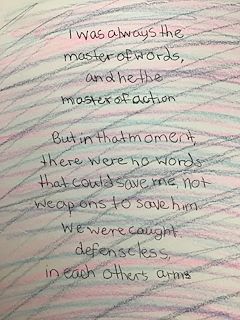 I was always the
master of words,
and he the
master of action
But in that moment,
there were no words
that could save me, not
weapons to save him
We were caught
defenseless,
in each others arms